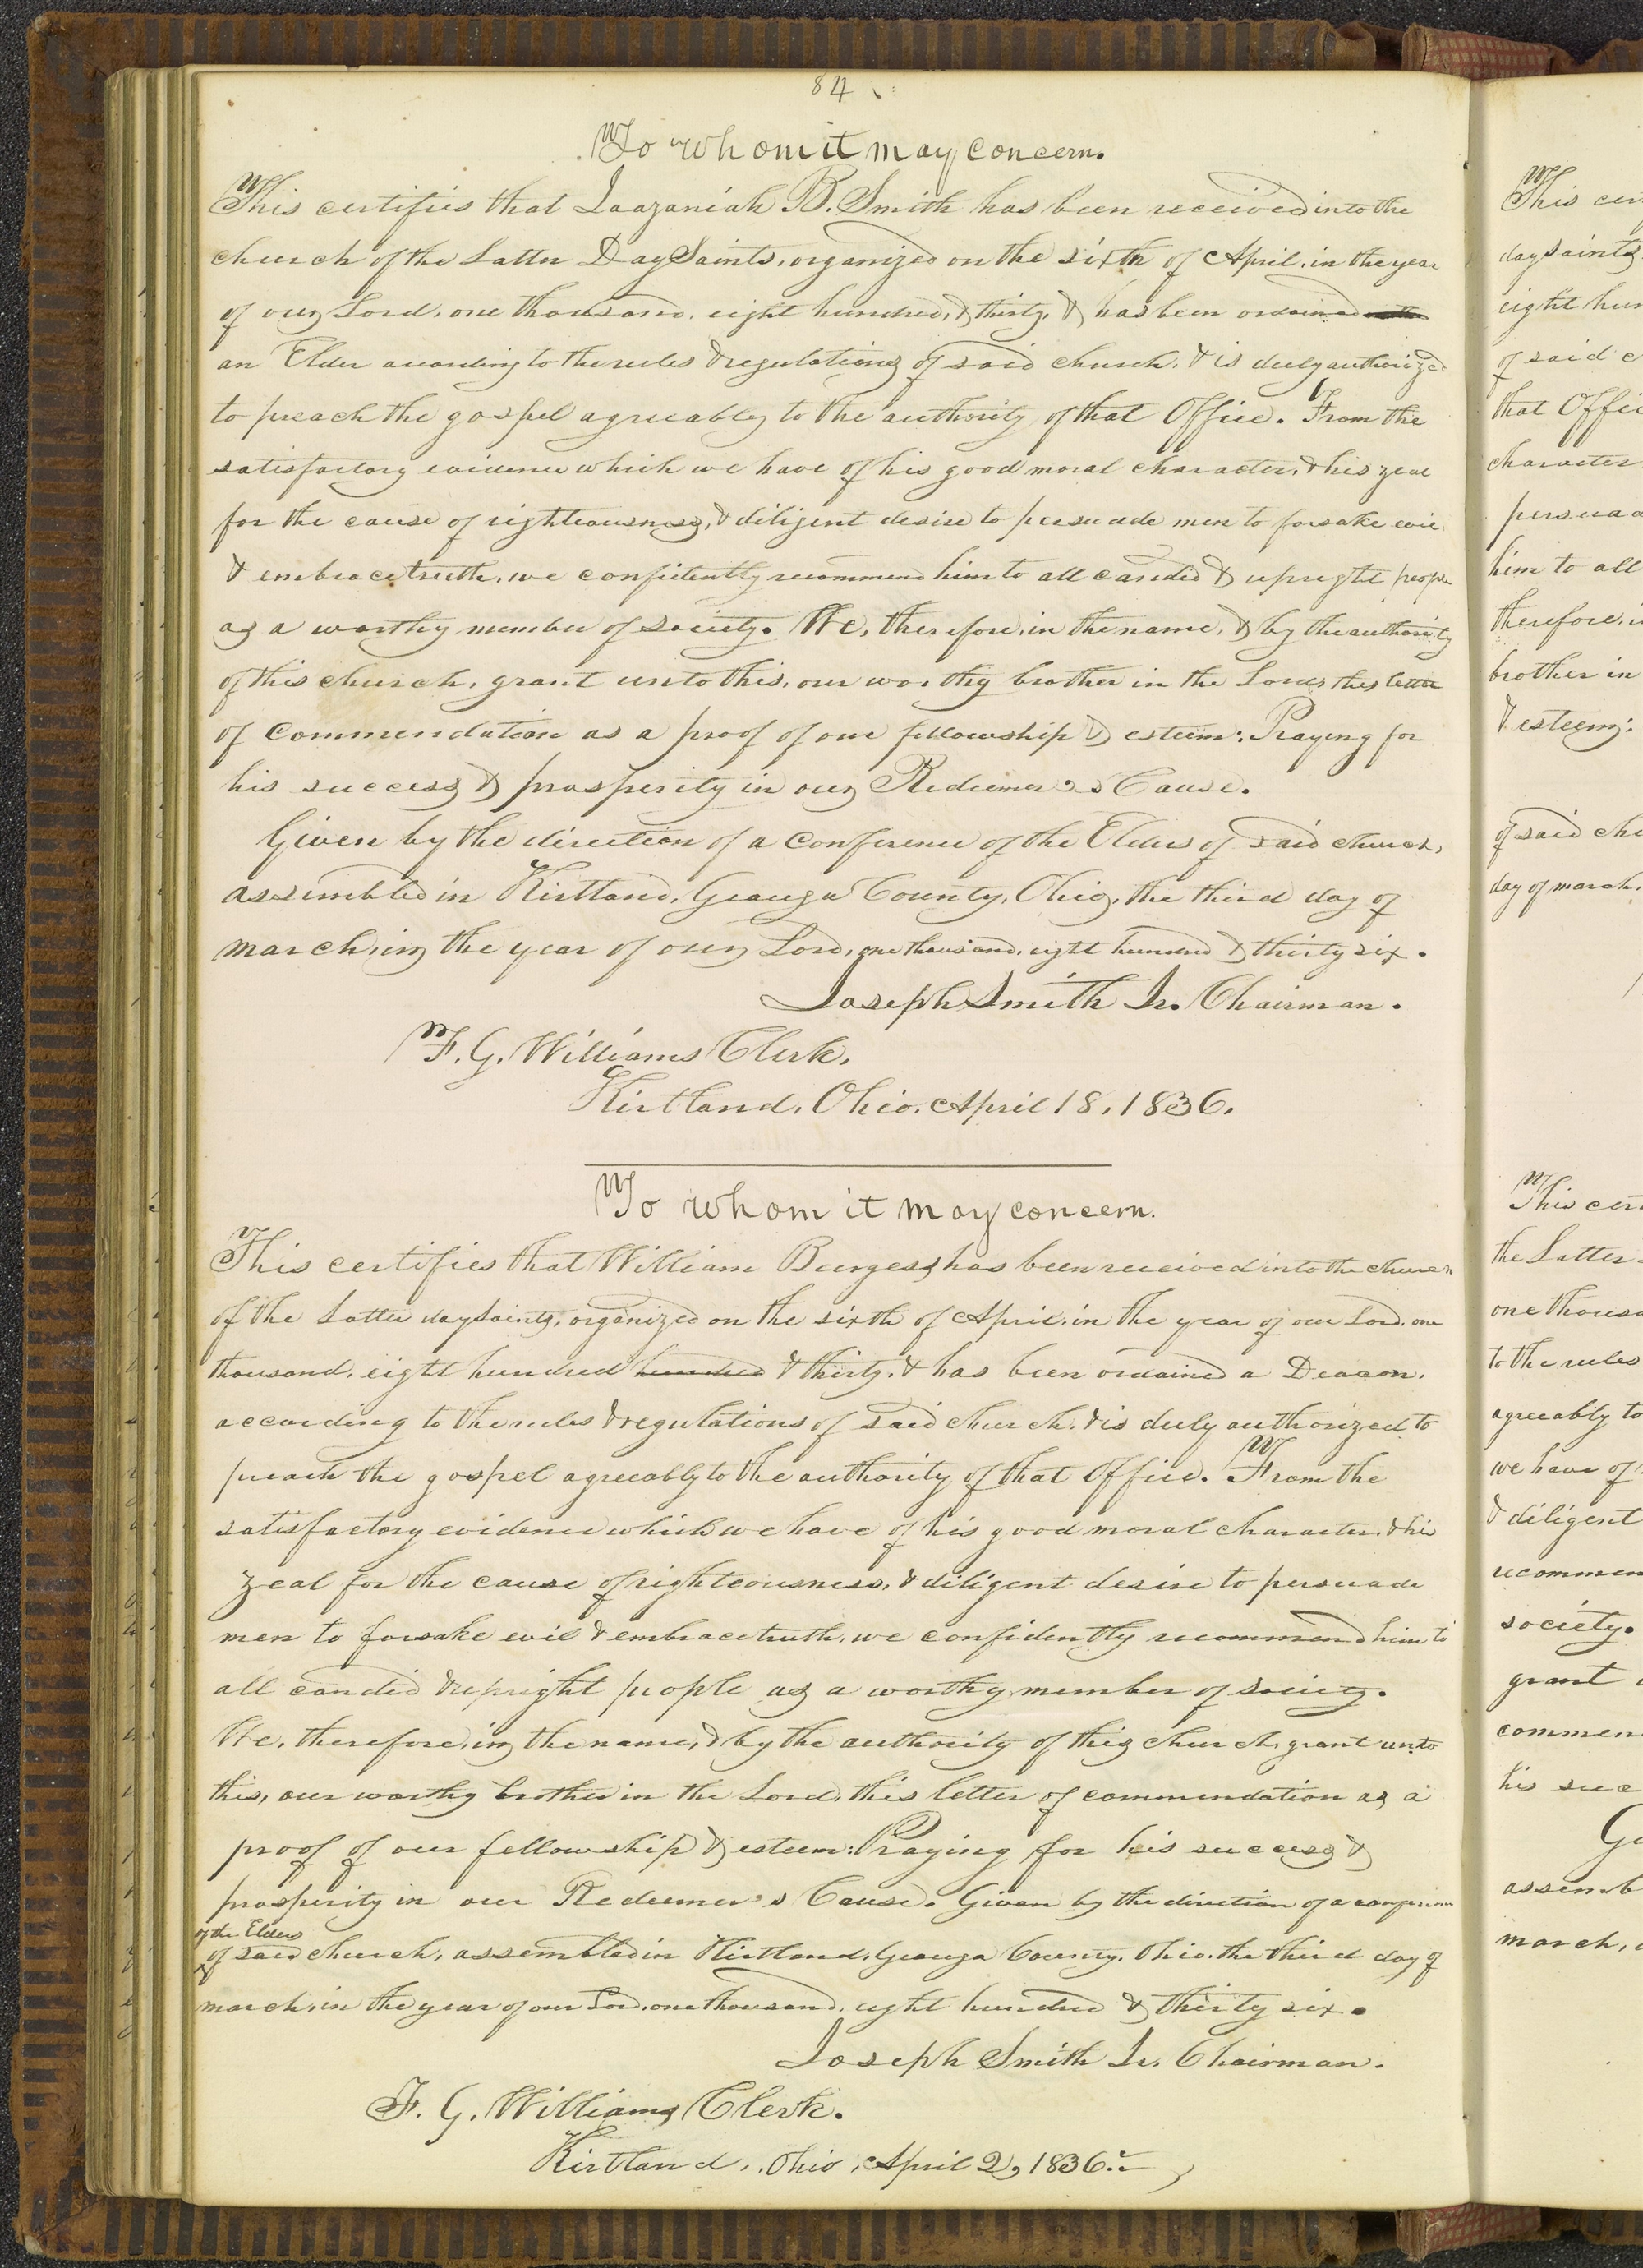 84
To whom it may concern.
This certifies that Jaazaniah B. Smith has been received into the
church of the Latter Day Saints, organized on the sixth of April, in the year
of our Lord, one thousand, eight hundred, & thirty, & has been ordained
an Elder according to the rules & regulations of said church, & is duly authorized
to preach the gospel agreeably to the authority of that Office. From the
satisfactory evidence which we have of his good moral character, & his zeal
for the cause of righteousness, & diligent desire to persuade men to forsake evil
& embrace truth, we confidently recommend him to all candid & upright people
as a worthy member of society. We, therefore, in the name, & by the authority
of this church, grant unto this, our worthy brother in the Lord, this letter
of commendation as a proof of our fellowship & esteem: Praying for
his success & prosperity in our Redeemer's Cause.
Given by the direction of a conference of the Elders of said church,
assembled in Kirtland, Geauga County, Ohio, the third day of
march, in the year of our Lord, one thousand, eight hundred & thirty six.
Joseph Smith Jr. Chairman.
F. G. Williams Clerk.
Kirtland, Ohio, April 18, 1836.
To whom it may concern.
This certifies that William Burgess has been received into the church
of the Latter day Saints, organized on the sixth of April, in the year of our Lord, one
thousand, eight hundred hundred & thirty, & has been ordained a Deacon,
according to the rules & regulations of said church, & is duly authorized to
preach the gospel agreeably to the authority of that office. From the
satisfactory evidence which we have of his good moral character, & his
zeal for the cause of righteousness, & diligent desire to persuade
men to forsake evil & embrace truth, we confidently recommend him to
all candid & upright people as a worthy member of society.
We, therefore, in the name, & by the authority of this church, grant unto
this, our worthy brother in the Lord, this letter of commendation as a
proof of our fellowship & esteem: Praying for his success &
prosperity in our Redeemer's Cause. Given by the direction of a conference
of the Elders
of said church, assembled in Kirtland, Geauga County, Ohio, the third day of
march, in the year of our Lord, one thousand, eight hundred & thirty six.
Joseph Smith Jr. Chairman.
F. G. Williams Clerk.
Kirtland, Ohio, April 2, 1836.
This cer
day saints
eight hun
of said c
that Offic
character
persuad
him to all
therefore, i
brother in
& esteem:
of said chu
day of march,
This cer
the Latter
one thousa
to the rules
agreeably to
we have of
& diligent
recommen
society.
grant
commen
his suc
assemb
march,